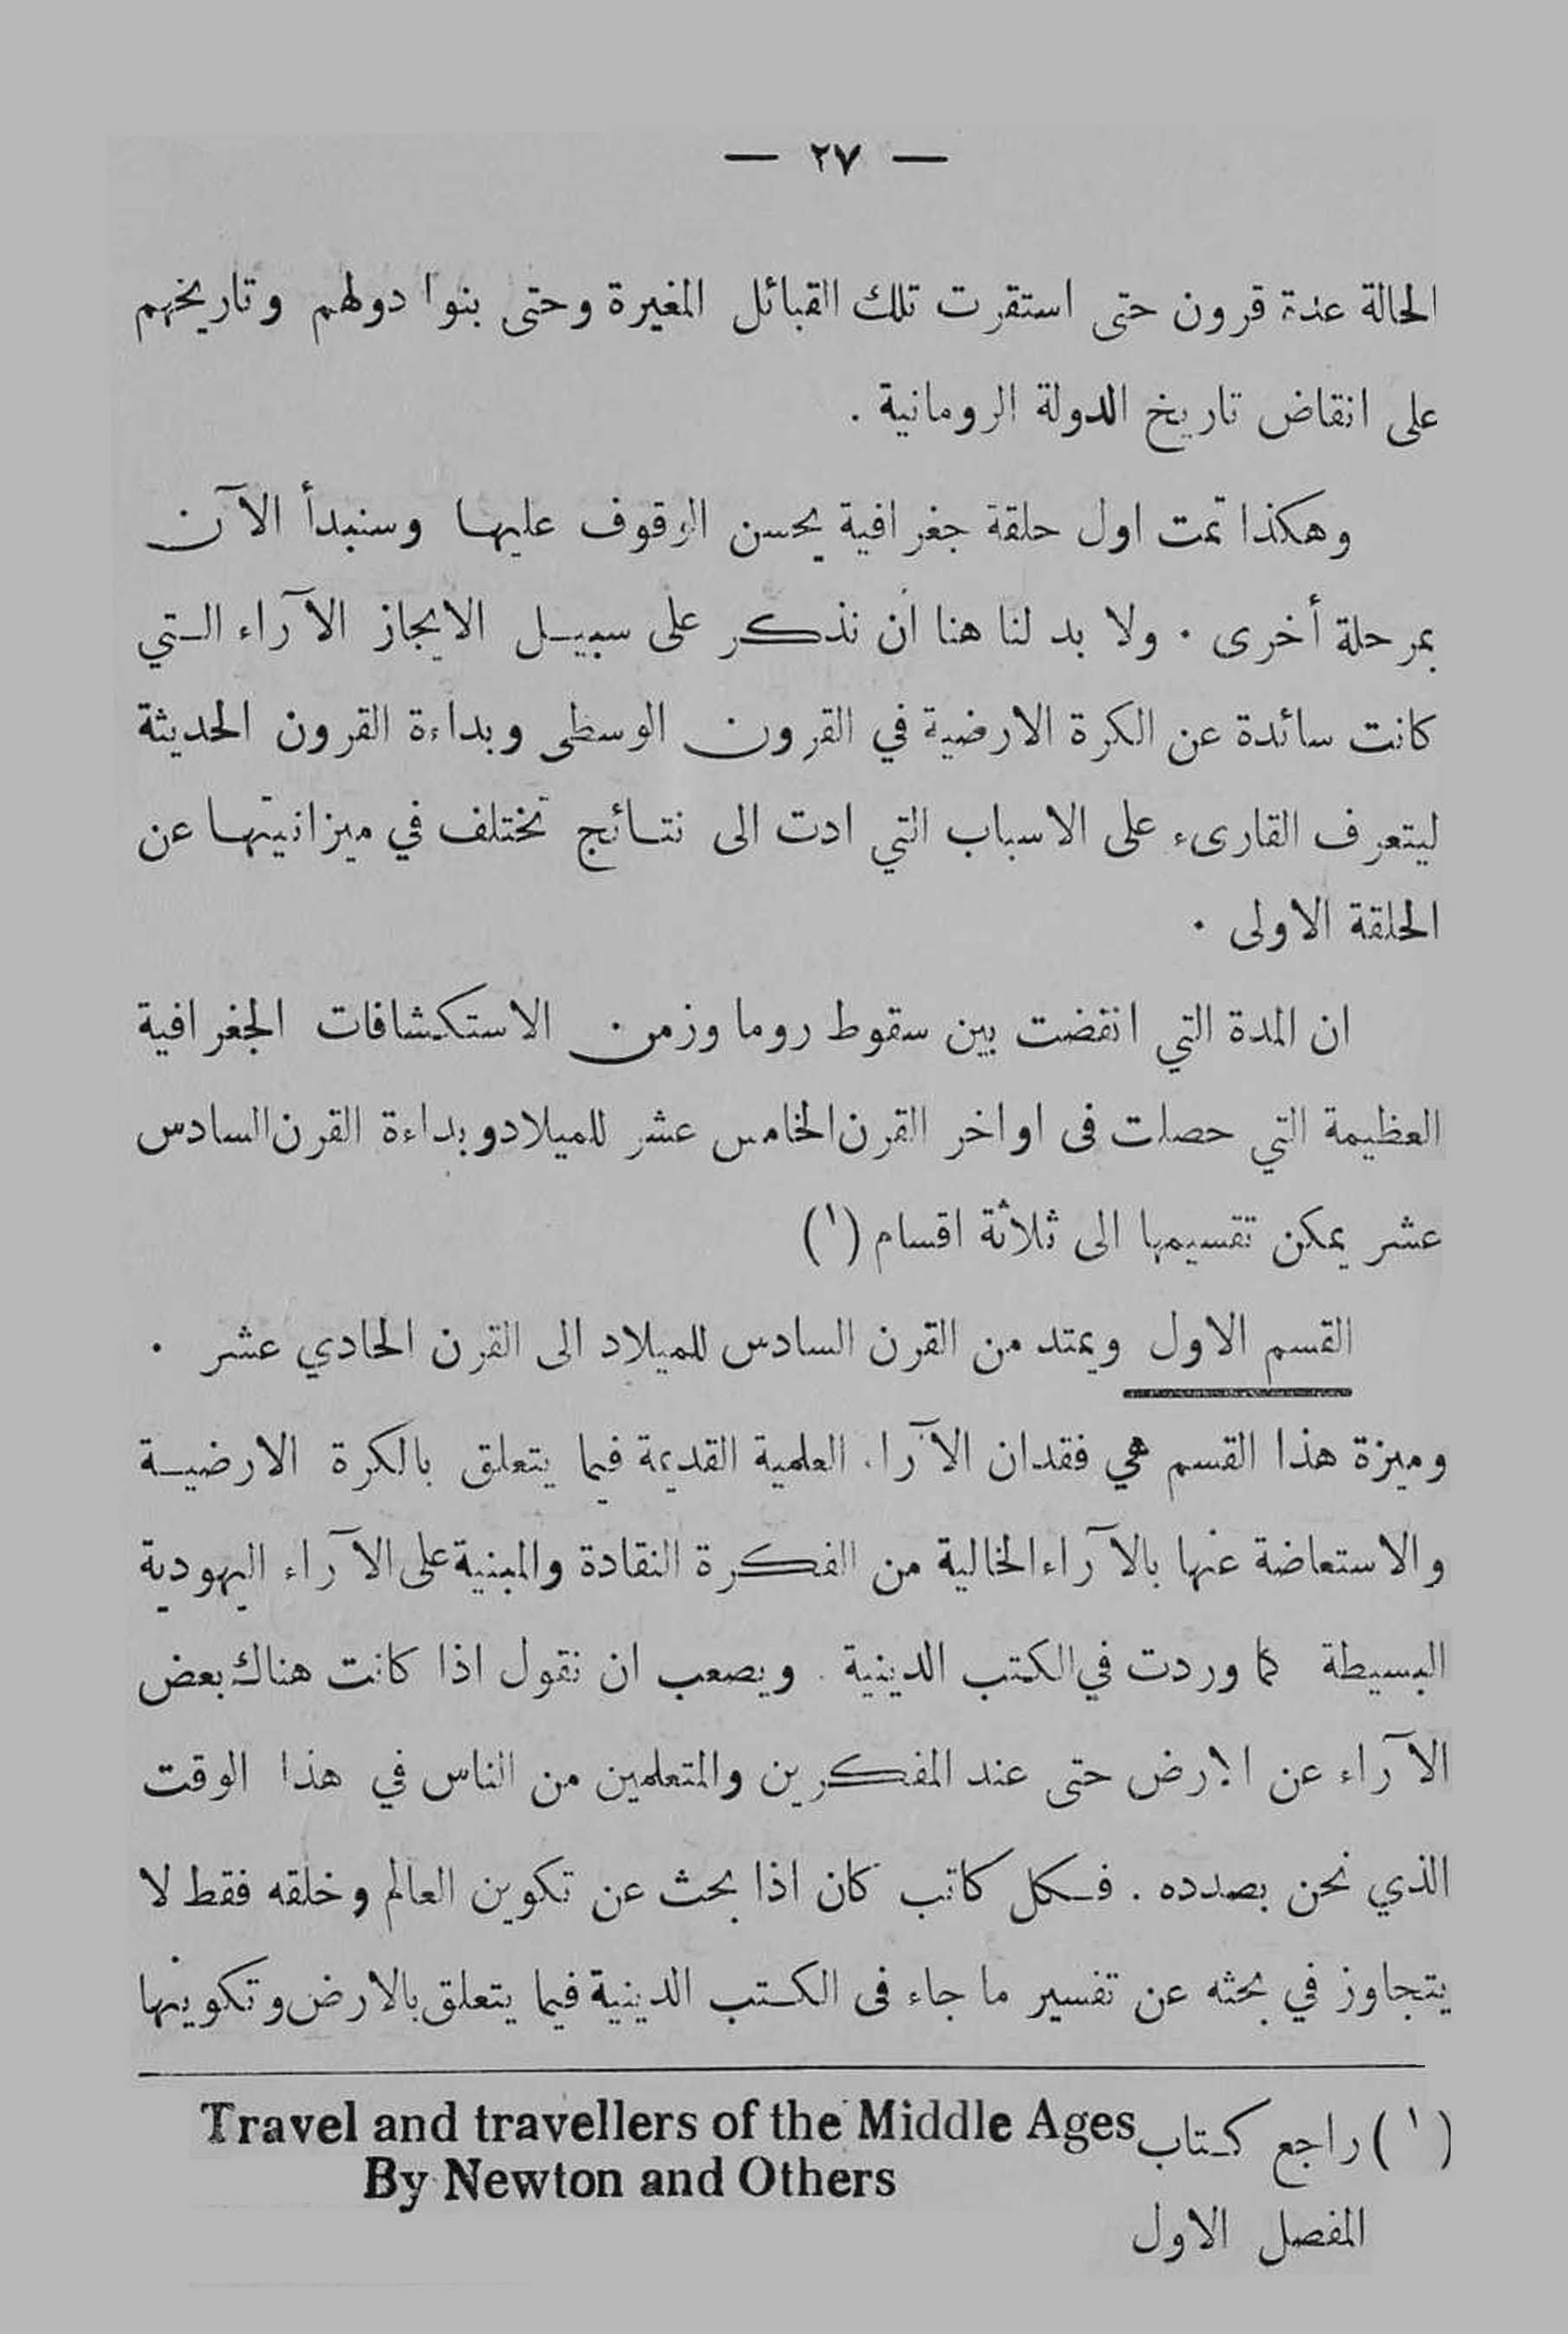 — ٢٧ —
الحالة عدة قرون حتى استقرت تلك القبائل المغيرة وحتى بنوا دولهم وتاريخهم
على انقاض تاريخ الدولة الرومانية .
وهكذا تمت اول حلقة جغرافية يحسن الوقوف عليها وسنبدأ الآن
بمرحلة أخرى . ولا بد لنا هنا ان نذكر على سبيل الايجاز الآراء التي
كانت سائدة عن الكرة الارضية في القرون الوسطى وبداءة القرون الحديثة
ليتعرف القارىء على الاسباب التي ادت الى نتائج تختلف في ميزانيتها عن
الحلقة الاولى .
ان المدة التي انقضت بين سقوط روما وزمن الاستكشافات الجغرافية
العظيمة التي حصلت فى اواخر القرن الخامس عشر للميلاد وبداءة القرن السادس
عشر يمكن تقسيمها الى ثلاثة اقسام (١)
القسم الاول ويمتد من القرن السادس للميلاد الى القرن الحادي عشر .
وميزة هذا القسم هي فقدان الآراء العلمية القديمة فيما يتعلق بالكرة الارضية
والاستعاضة عنها بالآراء الخالية من الفكرة النقادة والمبنية على الآراء اليهودية
البسيطة كما وردت في الكتب الدينية . ويصعب ان نقول اذا كانت هناك بعض
الآراء عن الارض حتى عند المفكرين والمتعلمين من الناس في هذا الوقت
الذي نحن بصدده . فكل كاتب كان اذا بحث عن تكوين العالم وخلقه فقط لا
يتجاوز في بحثه عن تفسير ما جاء فى الكتب الدينية فيما يتعلق بالارض وتكوينها
(١) راجع كتاب Travel and travellers of the Middle Ages
By Newton and Others
المفصل الاول